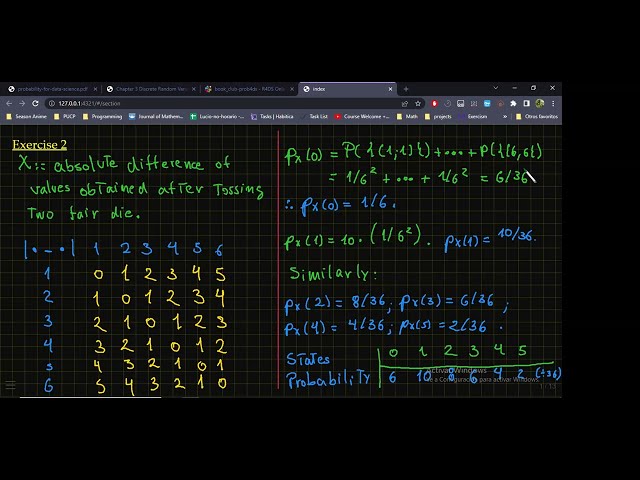 probability-for-data-science.pdf
Chapter 3 Discrete Random Vari
book_club-prob4ds - R4DS Onli
index
127.0.0.1:4321/#/section
Season Anime
PUCP
Journal of Mathem...
Lucio-no-horario - G...
Tasks | Habitica
Instant Text
Course Welcome +...
Power BI
Otros favoritos
Exercise 2
X:= absolute difference of
values obtained after tossing
Two fair die.
|·-·| 1 2 3 4 5 6
1 0 1 2 3 4 5
2 1 0 1 2 3 4
3 2 1 0 1 2 3
4 3 2 1 0 1 2
5 4 3 2 1 0 1
6 5 4 3 2 1 0
px(0) = P({(1,1)}) + ... + P({(6,6})
= 1/6² + ... + 1/6² = 6/36
∴ px(0) = 1/6.
px(1) = 10·(1/6²). px(1) = 10/36.
Similarly:
px(2) = 8/36; px(3) = 6/36;
px(4) = 4/36; px(5) = 2/36.
States 0 1 2 3 4 5
Probability 6 10 8 6 4 2 (÷36)
Activar Windows
Ve a Configuración para activar Windows.